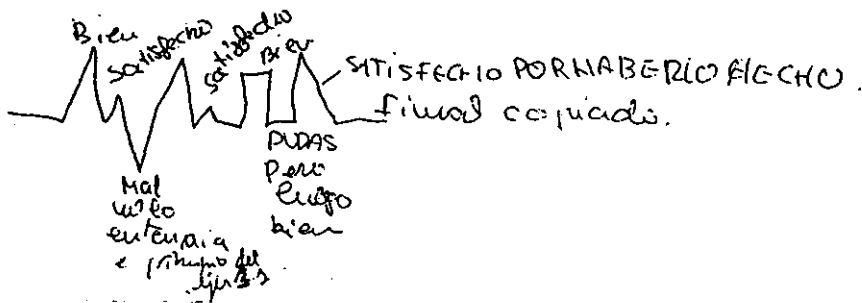 Bien
satisfecho
satisfecho
Bien
SATISFECHO POR HABERLO HECHO.
final copiado.
DUDAS
Pero
luego
bien
Mal
no lo
entendia
e principio del